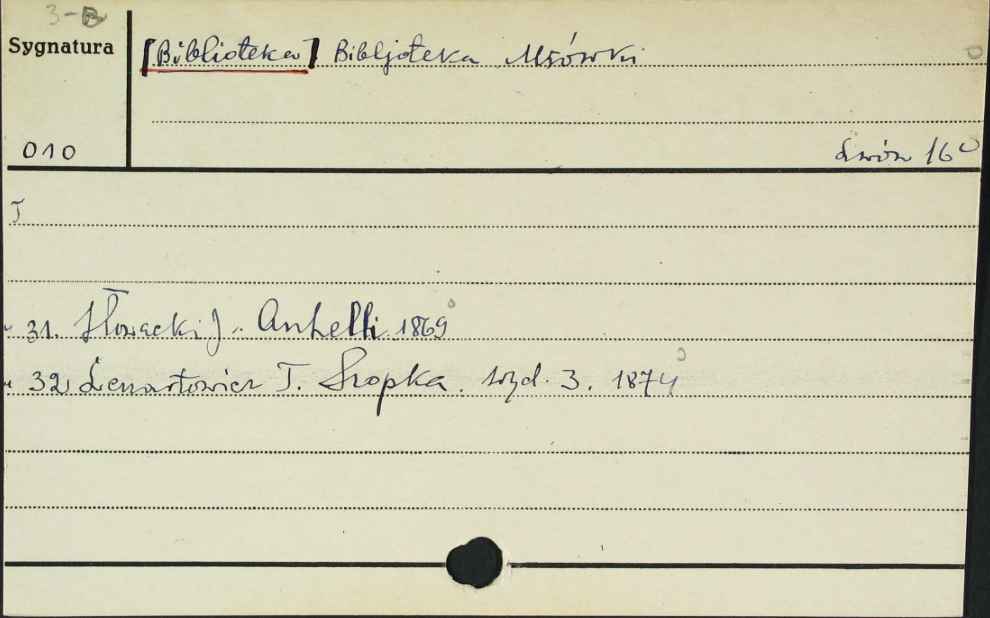 3-B
Sygnatura
[Biblioteka] Bibljoteka Mrówki
010
Lwów 16°
T
31. Słowacki J. Anhelli 1869
32 Lenartowicz T. Szopka. wyd. 3. 1874